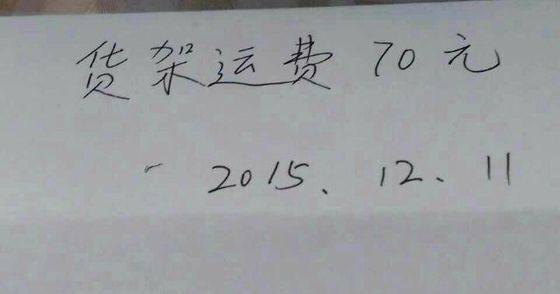 货架运费 70元
2015、12、11